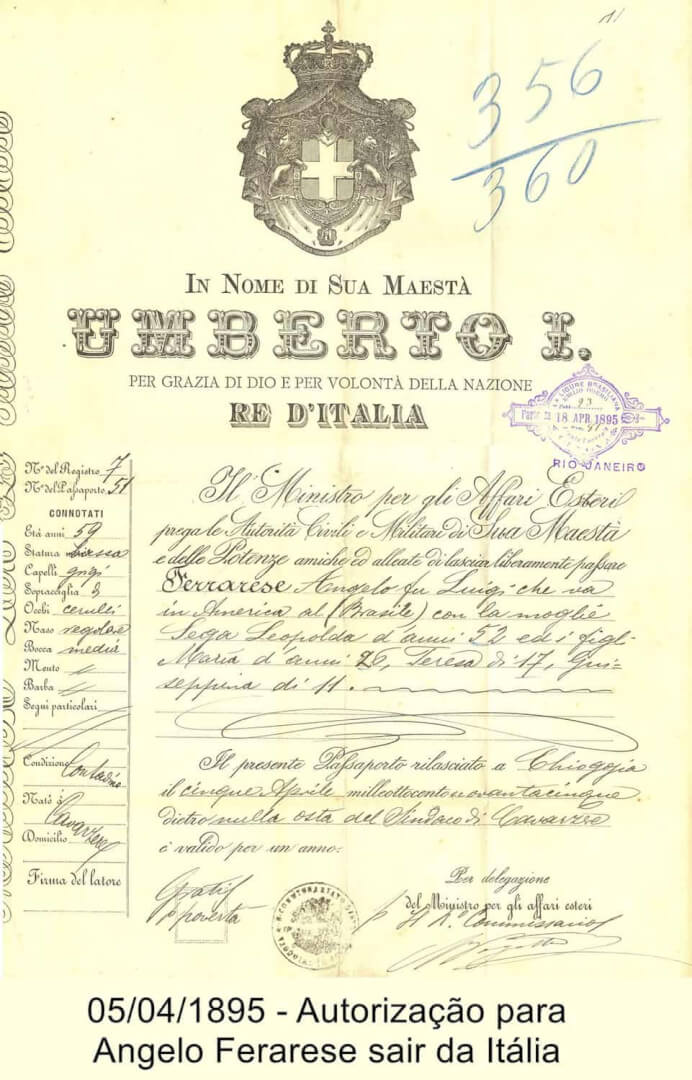 356
360
IN NOME DI SUA MAESTÀ
UMBERTO I.
PER GRAZIA DI DIO E PER VOLONTÀ DELLA NAZIONE
RE D'ITALIA
LIGURE BRASILIANA
18 APR. 1895
RIO JANEIRO
Nº del Registro 7
Nº del Passaporto 51
CONNOTATI
Età anni 59
Statura bassa
Capelli grigi
Sopracciglia
Occhi cerulei
Naso regolare
Bocca media
Mento
Barba
Segni particolari
Condizione Contadino
Nato a Cavarzere
Domicilio
Firma del latore
Il Ministro per gli Affari Esteri
prega le Autorità Civili e Militari di Sua Maestà
e delle Potenze amiche ed alleate di lasciar liberamente passare
Ferrarese Angelo fu Luigi che va
in America al (Brasile) con la moglie
Sega Leopolda d'anni 52 ed i figli
Maria d'anni 26, Teresa di 17, Giu-
seppina di 11.
Il presente Passaporto rilasciato a Chioggia
il cinque Aprile milleottocento novantacinque
dietro nulla osta del Sindaco di Cavarzere
è valido per un anno:
Gratis
p povertà
Per delegazione
del Ministro per gli affari esteri
Il R. Commissario
05/04/1895 - Autorização para
Angelo Ferarese sair da Itália